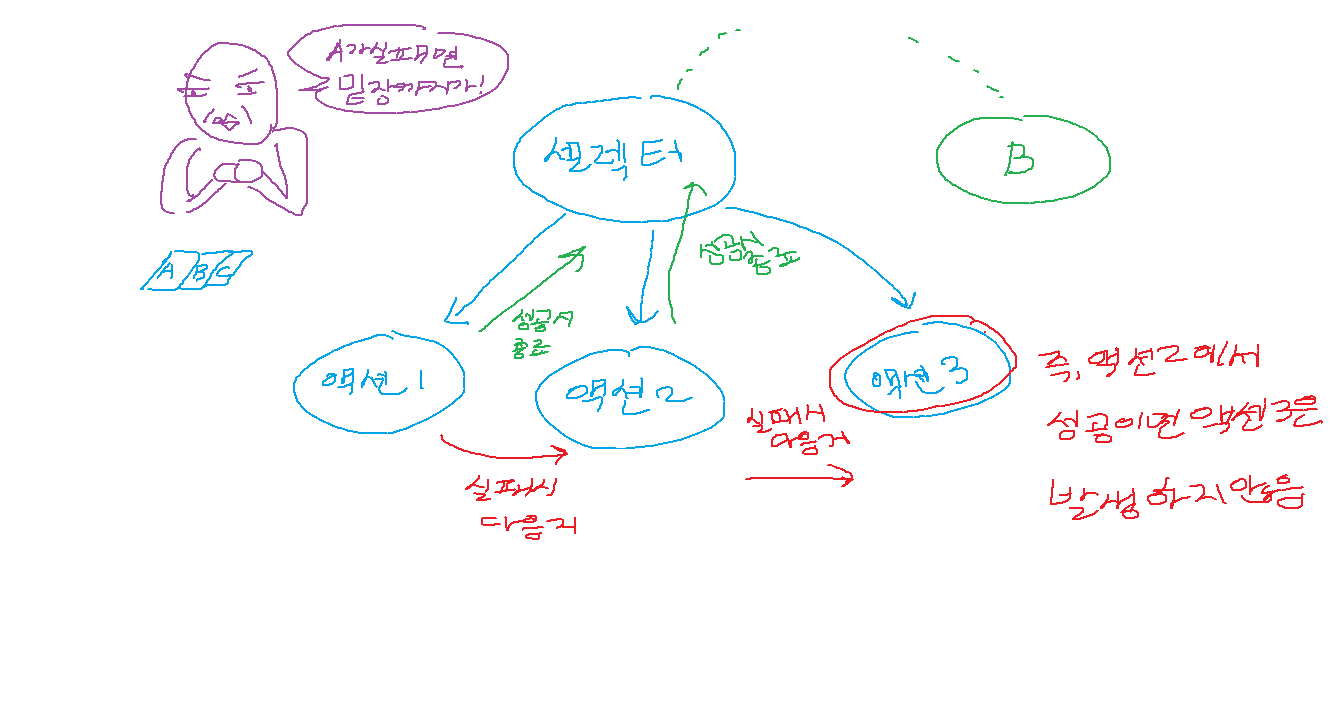 A가실패하면
밑장까지가!
셀렉터
B
A B C
성공시
종료
성공시
종료
액션1
액션2
액션3
실패시
다음거
실패시
다음거
즉, 액션2에서
성공이면 액션3은
발생하지않음